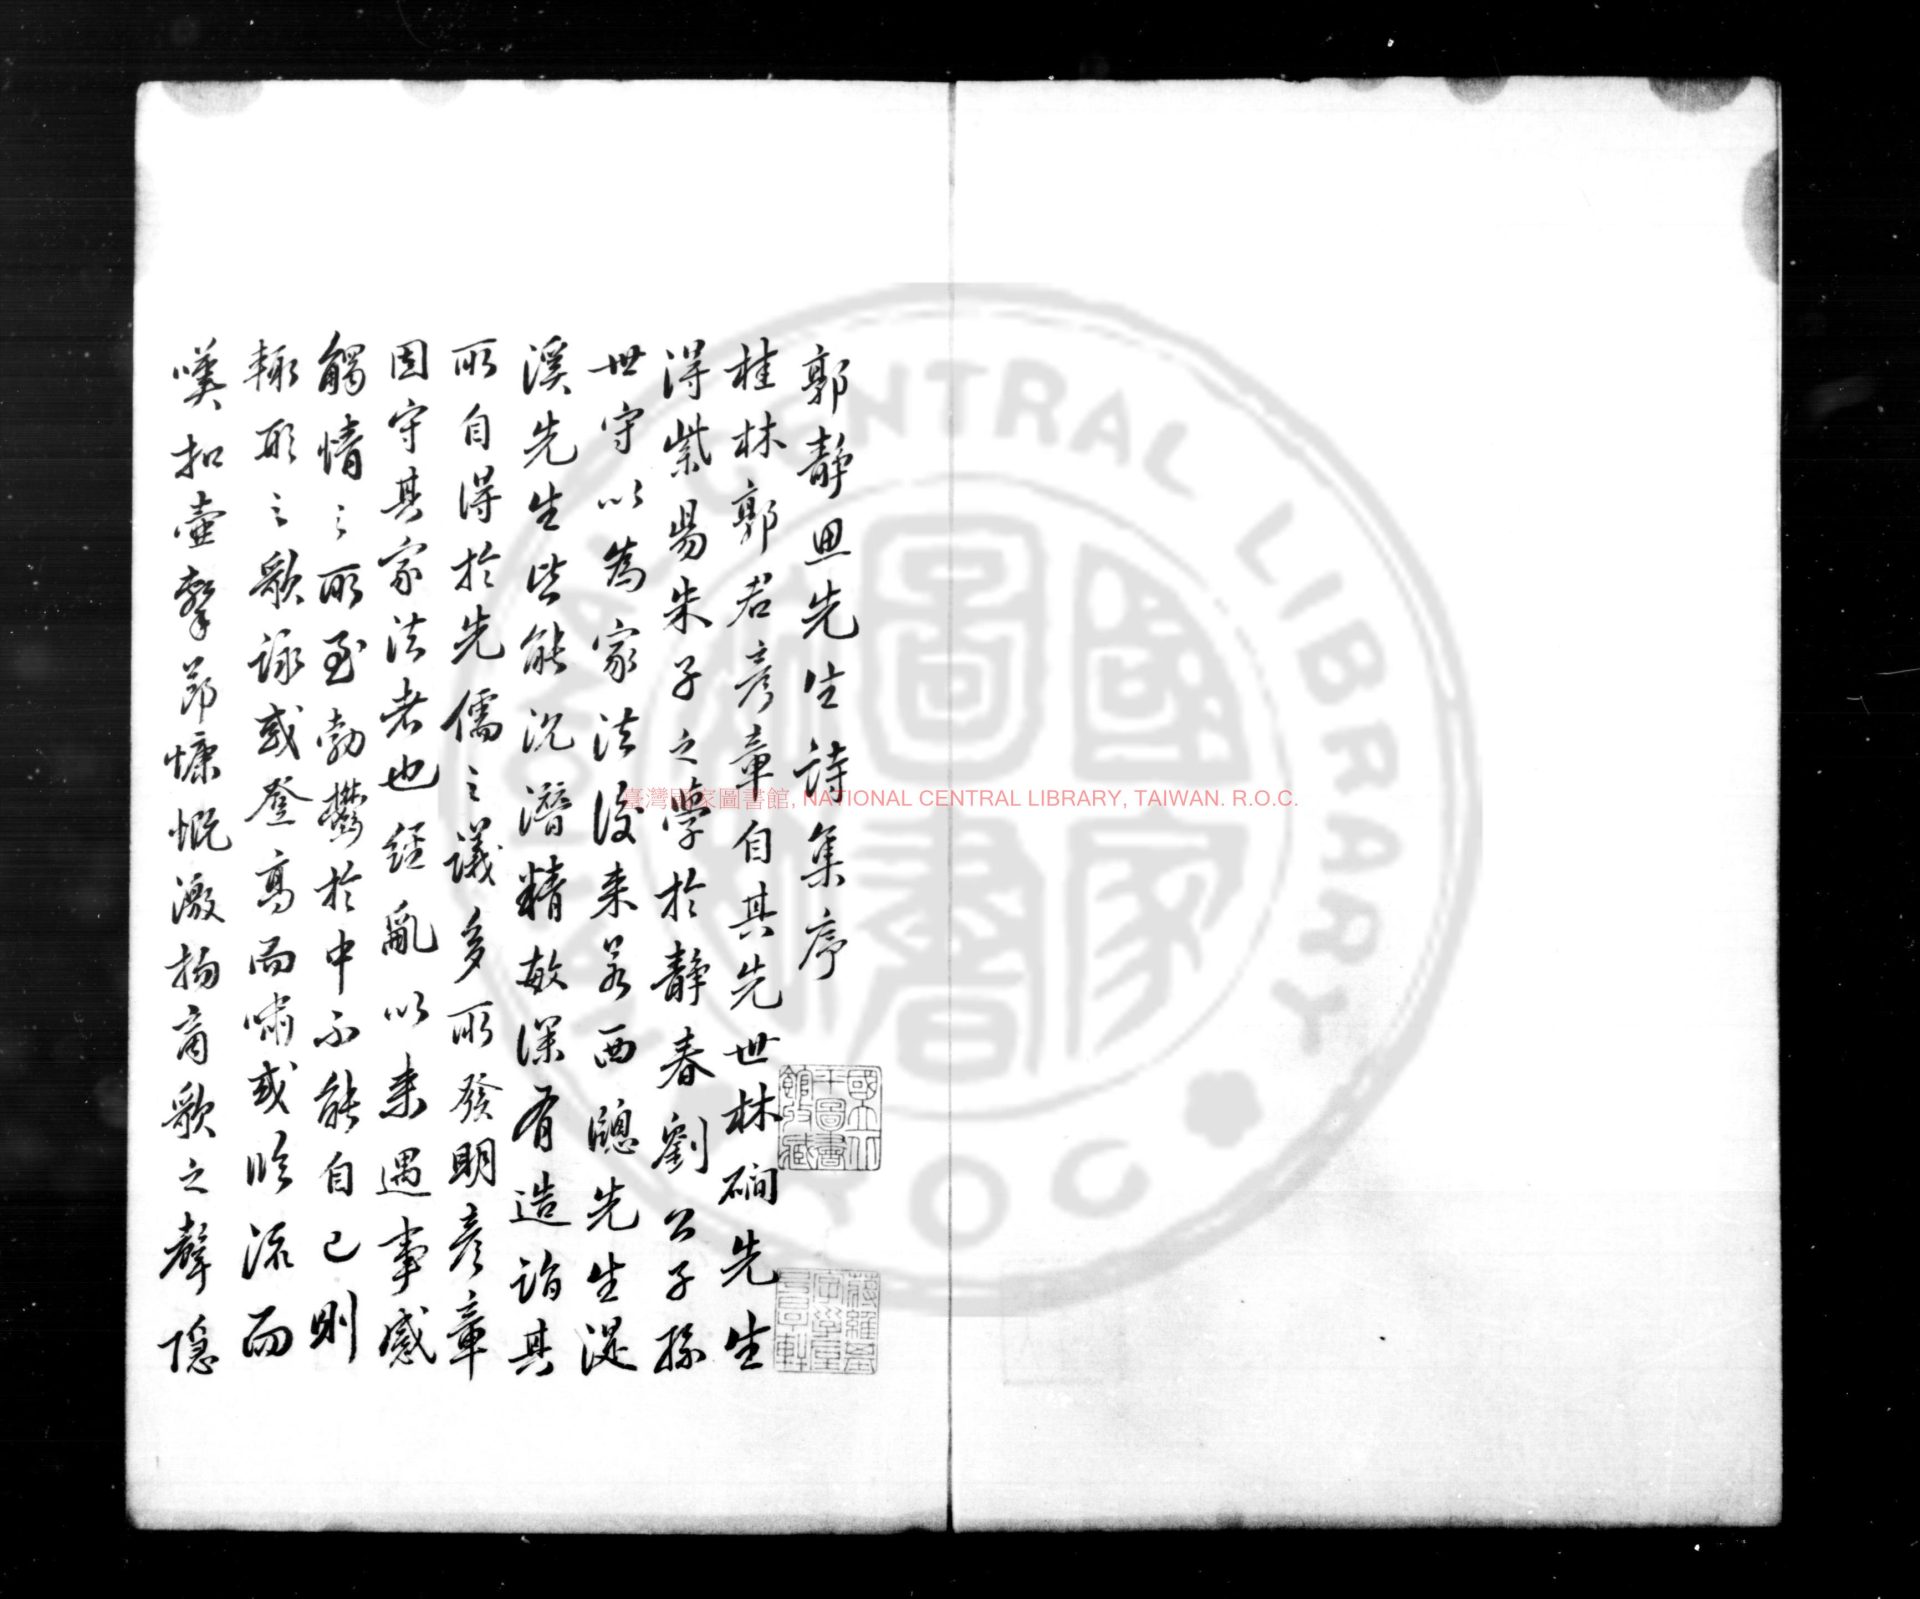 郭靜思先生詩集序
桂林郭君彥章自其先世林磵先生
得紫陽朱子之學於靜春劉公子孫
世守以為家法後来若西牕先生湜
溪先生皆能沉潛精敏深有造詣其
所自得於先儒之議多所發明彥章
固守其家法者也經亂以来遇事感
觸情之所至勃鬱於中不能自已則
輙形之歌詠或登高而嘯或臨流而
嘆扣壷擊節慷慨激揚商歌之聲隠
國立北
平圖書
館收藏
臺灣國家圖書館, NATIONAL CENTRAL LIBRARY, TAIWAN. R.O.C.
NATIONAL CENTRAL LIBRARY R.O.C.
國家圖書館